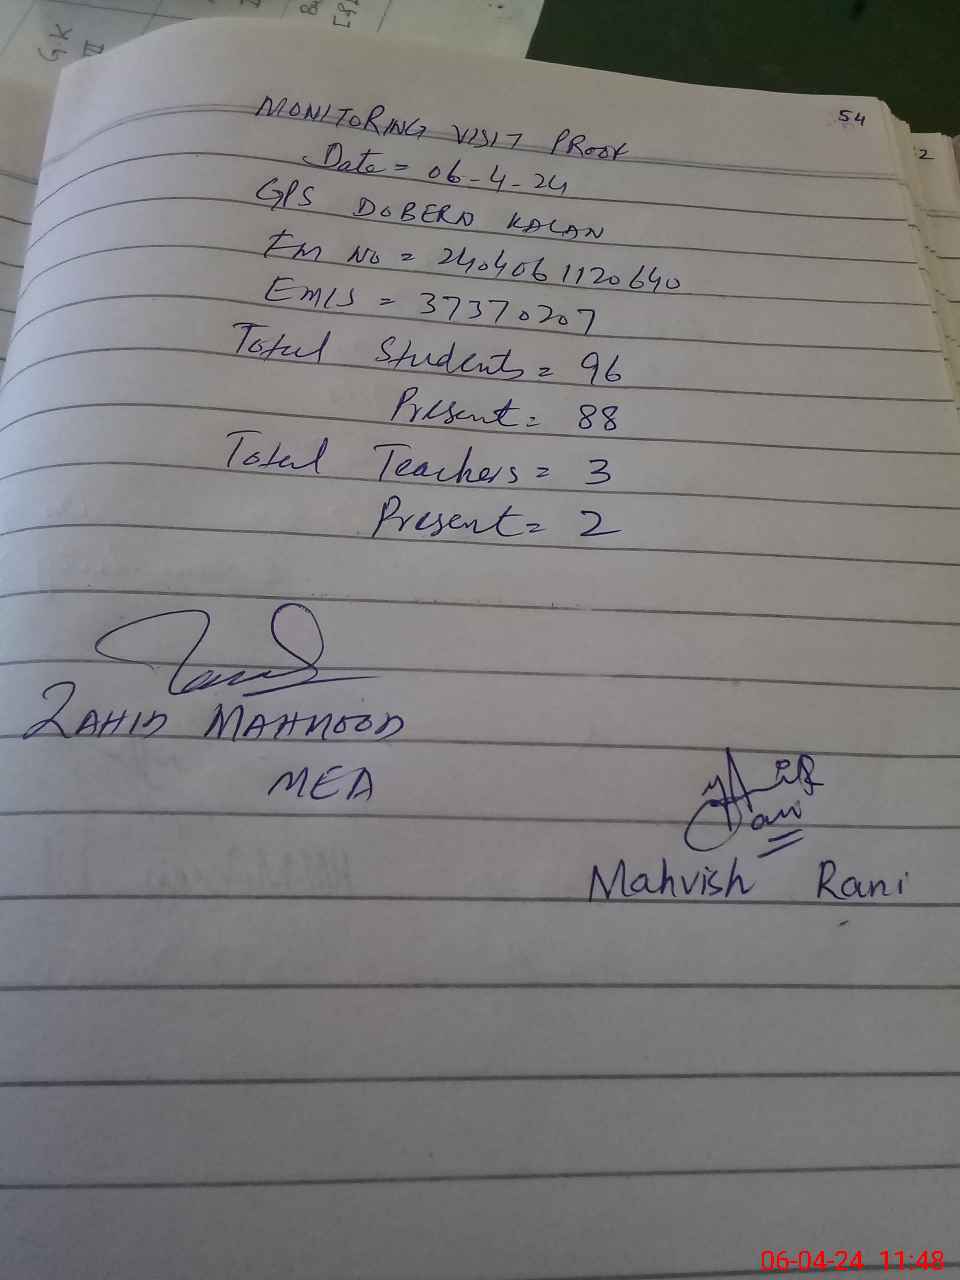 G.K
III
54
2
MONITORING VISIT PROOF
Date = 06-4-24
GPS DOBERN KALAN
EM No = 2404061120640
EMIS = 37370207
Total Students = 96
Present = 88
Total Teachers = 3
Present = 2
ZAHID MAHMOOD
MEA
Mahvish Rani
06-04-24 11:48